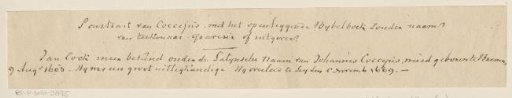 Portrait van Coccejus, met het openliggende Bybelboek zonder naam
van teekenaar, graveur of uitgever
Jan Cock meer bekend onder de Latynsche Naam van Johannes Coccejus, werd geboren te Bremen,
9 Augt 1603. Hy was een groot uitlegkundige. Hy overleed te Leyden 5 Novemb 1669. —